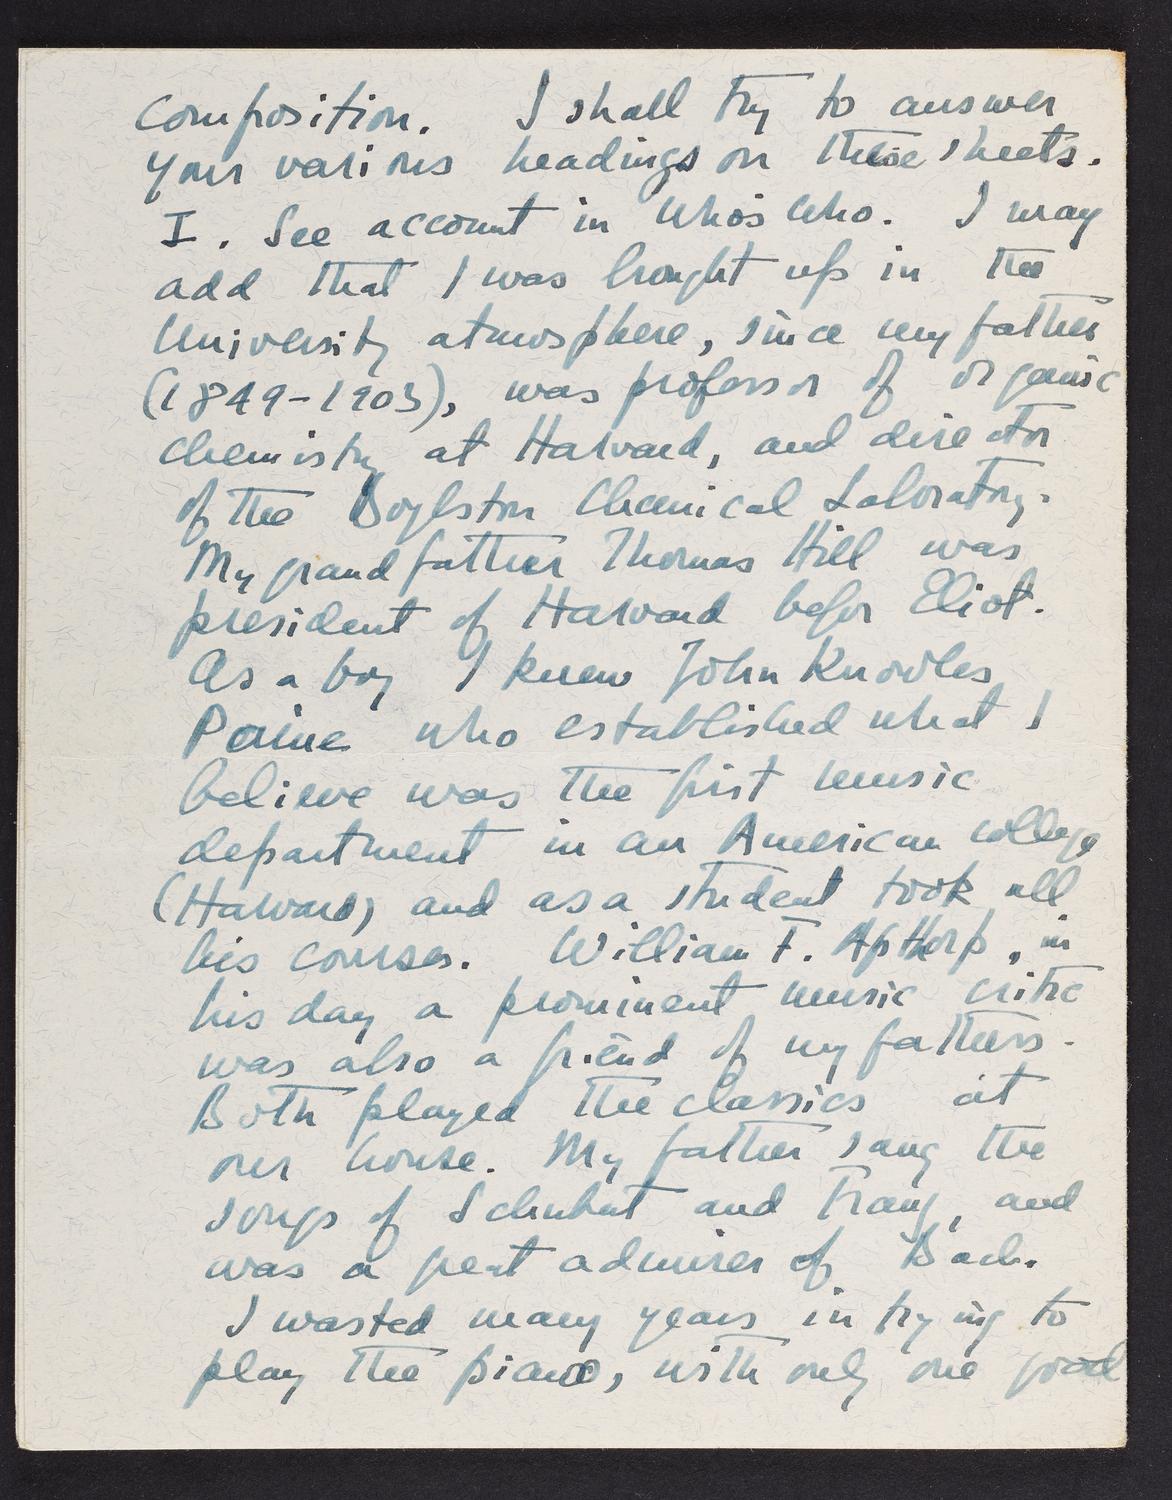 composition. I shall try to answer
your various headings on these sheets.
I. See account in Who's Who. I may
add that I was brought up in the
University atmosphere, since my father
(1849-1903), was professor of organic
chemistry at Harvard, and director
of the Boylston Chemical Laboratory.
My grandfather Thomas Hill was
president of Harvard befor Eliot.
As a boy I knew John Knowles
Paine who established what I
believe was the first music
department in an American college
(Harvard) and as a student took all
his courses. William F. Apthorp, in
his day a prominent music critic
was also a friend of my fathers.
Both played the classics at
our house. My father sang the
songs of Schubert and Franz, and
was a great admirer of Bach.
I wasted many years in trying to
play the piano, with only one good